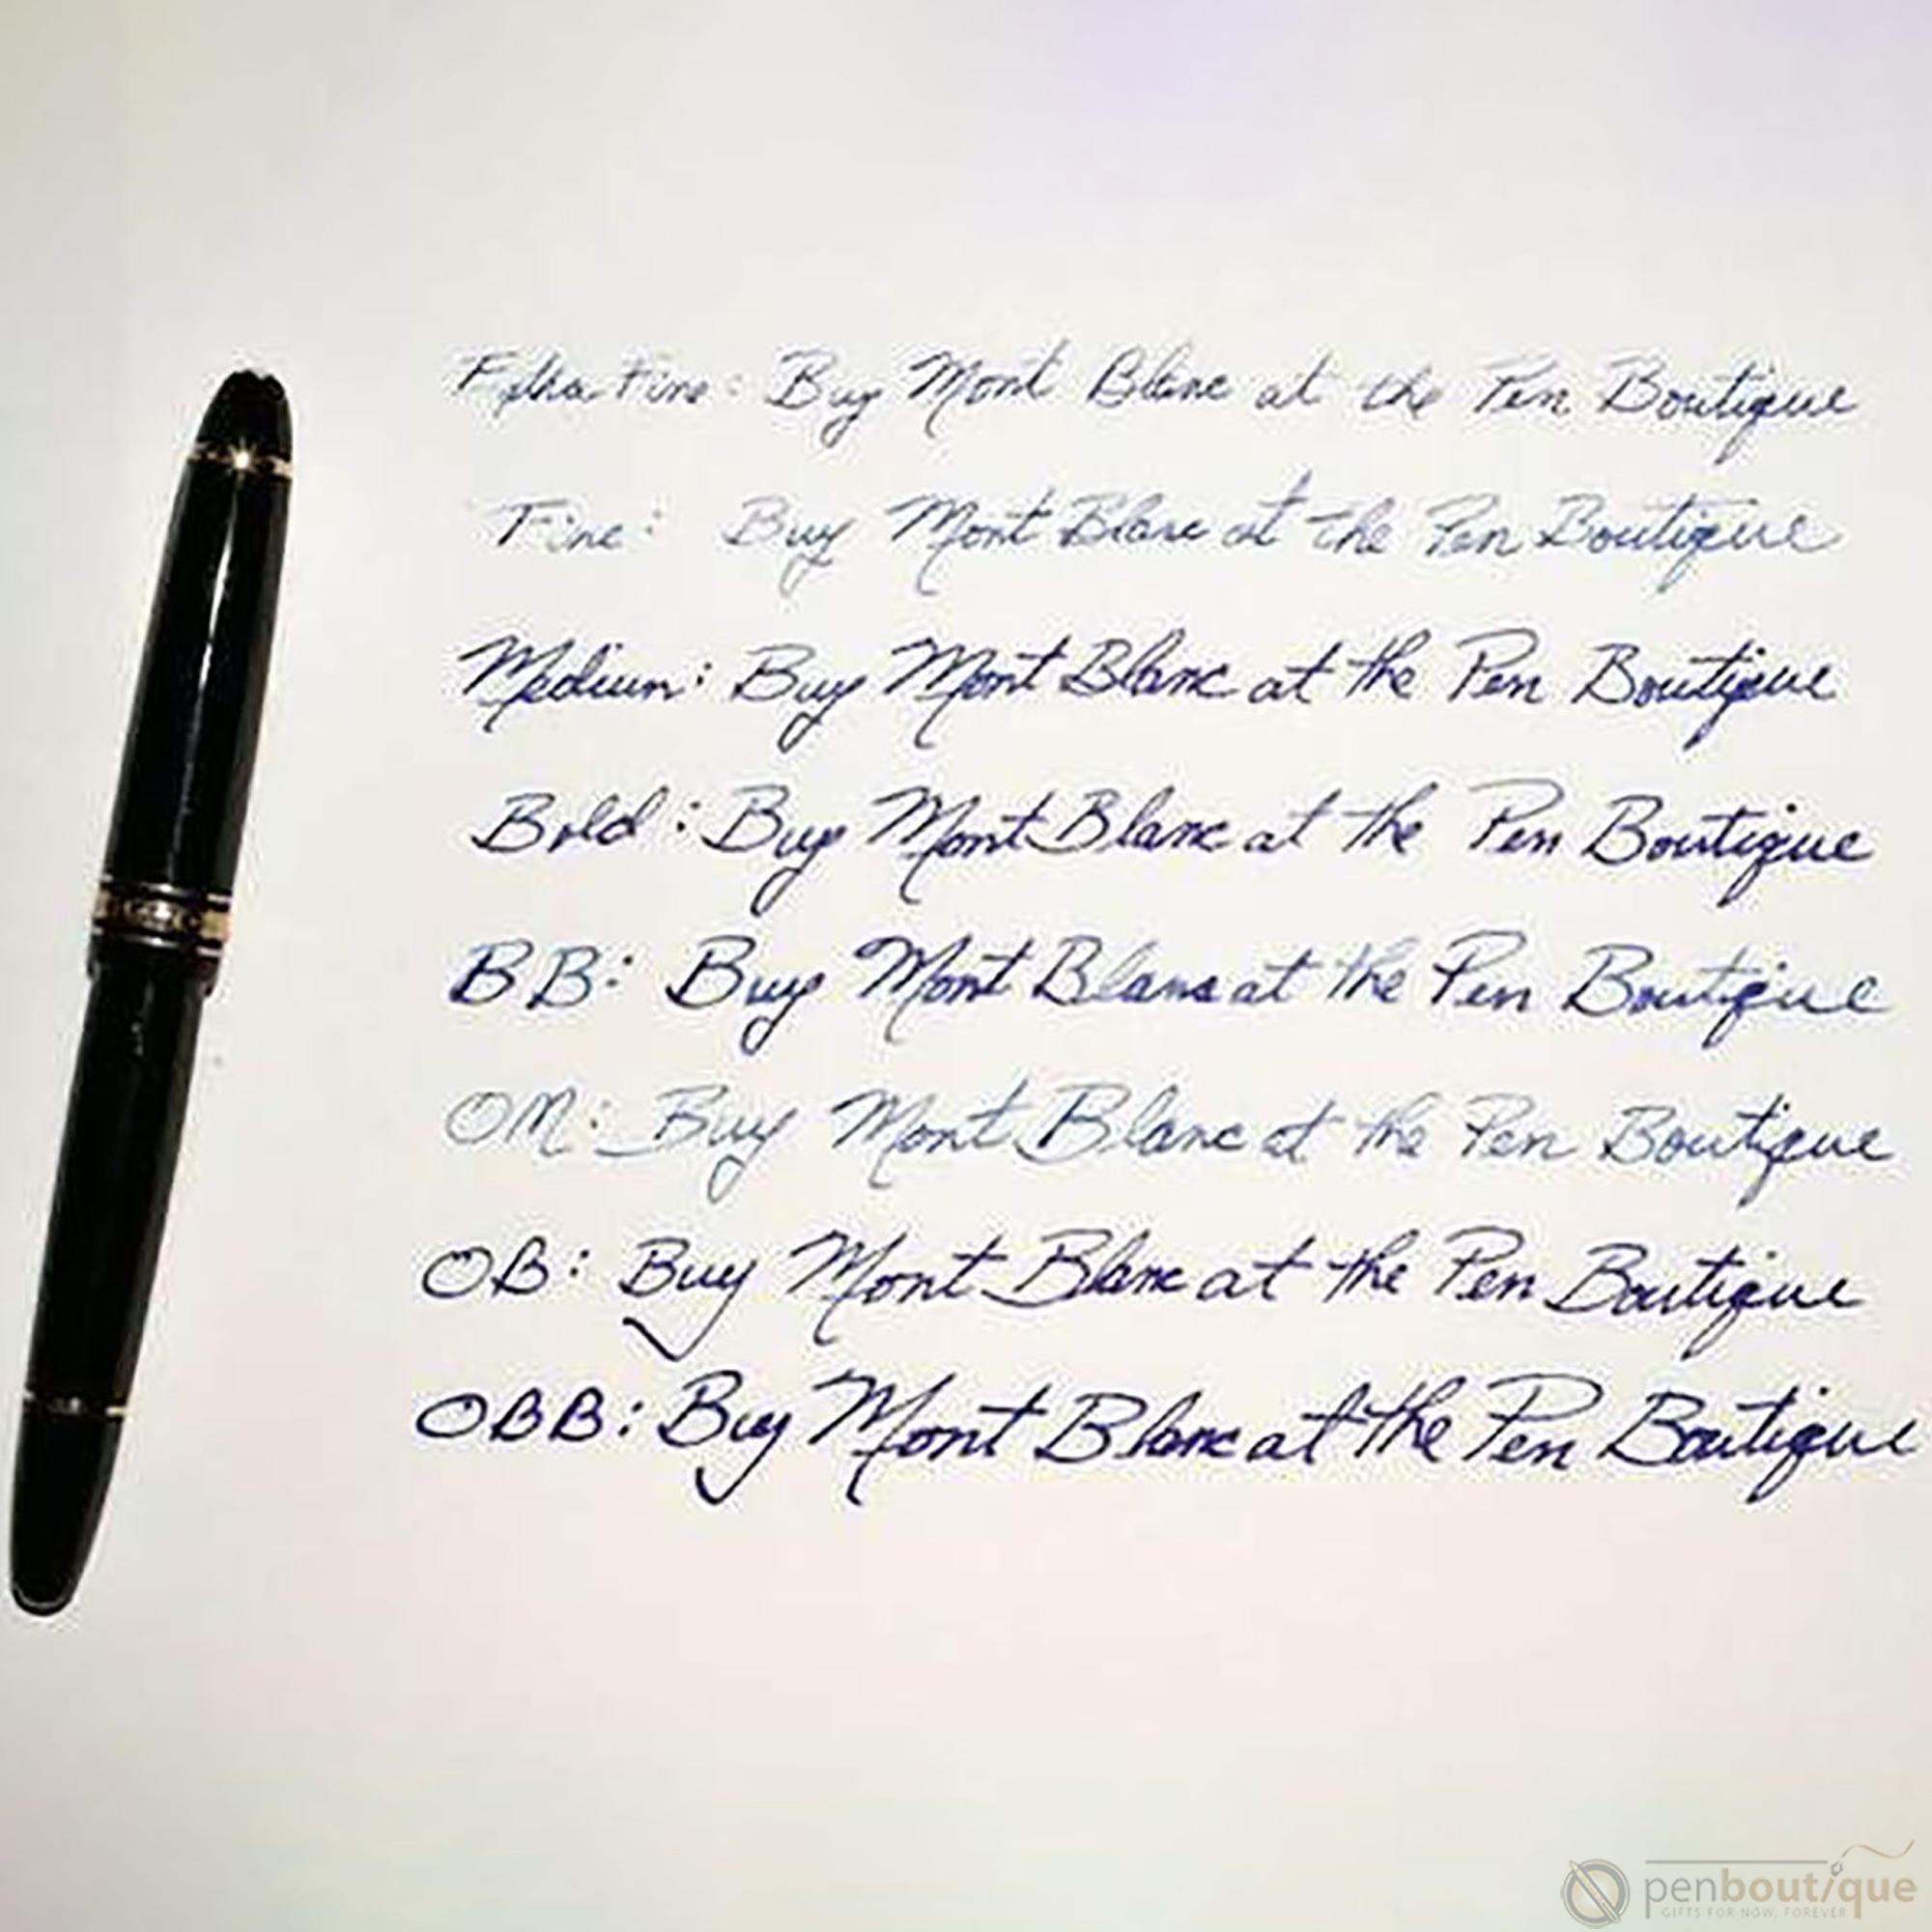 Extra Fine: Buy Mont Blanc at the Pen Boutique
Fine: Buy Mont Blanc at the Pen Boutique
Medium: Buy Mont Blanc at the Pen Boutique
Bold: Buy Mont Blanc at the Pen Boutique
BB: Buy Mont Blanc at the Pen Boutique
OM: Buy Mont Blanc at the Pen Boutique
OB: Buy Mont Blanc at the Pen Boutique
OBB: Buy Mont Blanc at the Pen Boutique
penboutique
GIFTS FOR NOW, FOREVER